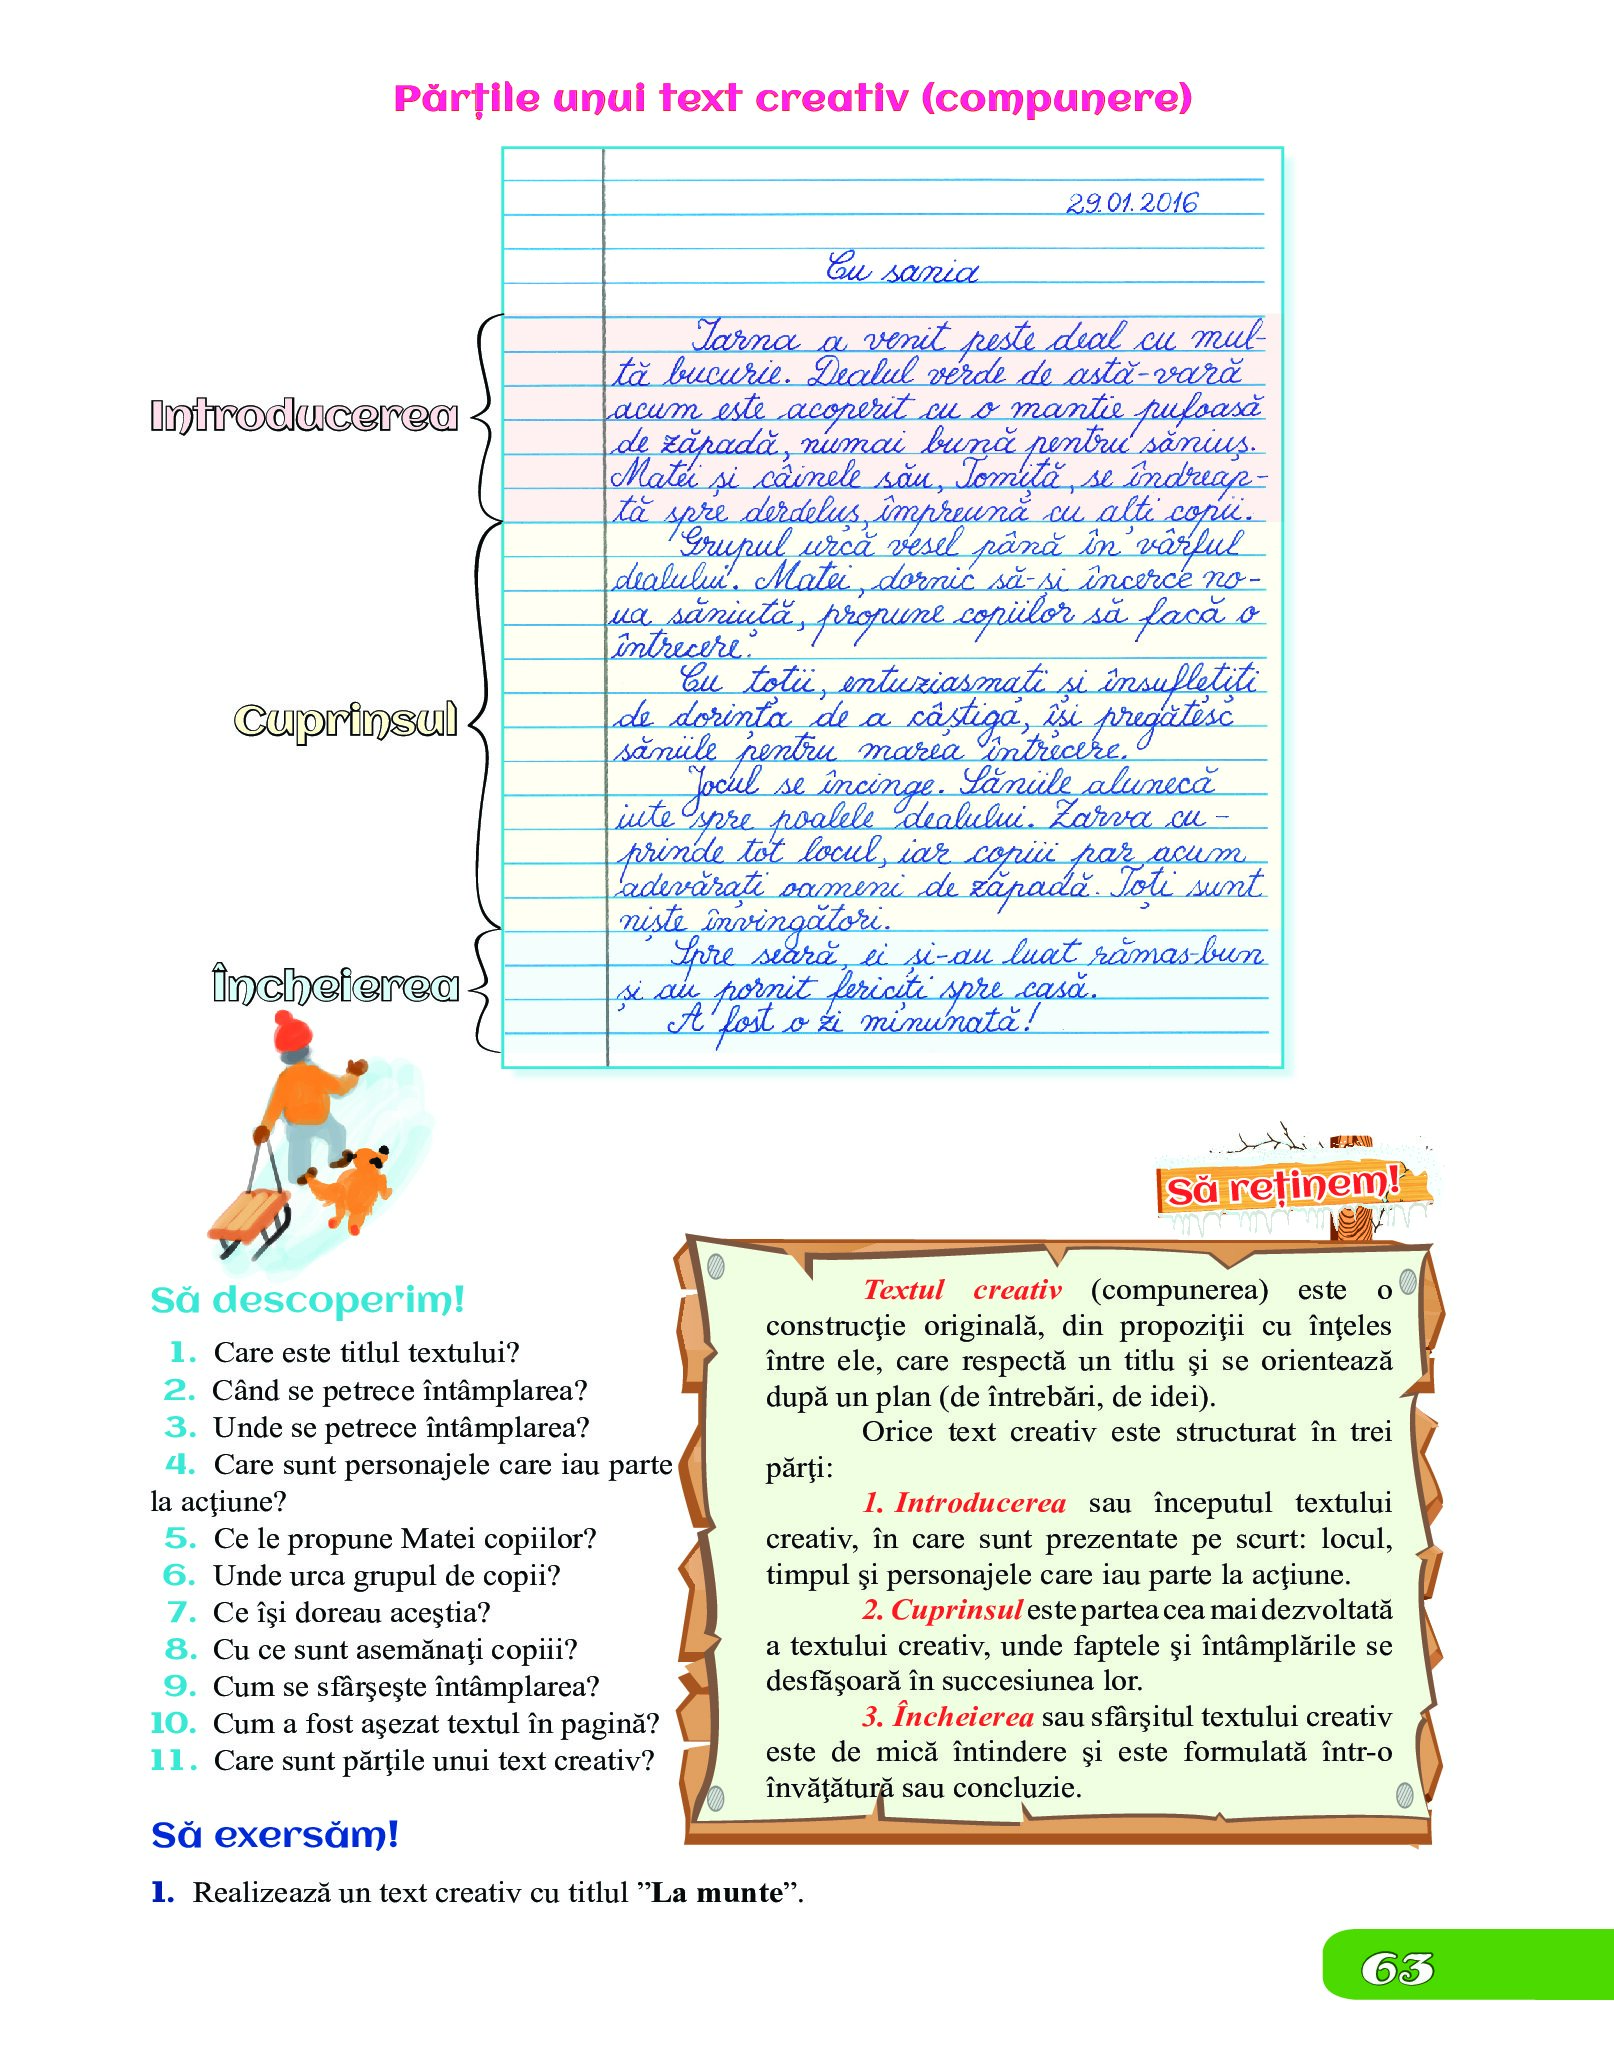 Părțile unui text creativ (compunere)
29.01.2016
Cu sania
Iarna a venit peste deal cu mul-
tă bucurie. Dealul verde de astă-vară
acum este acoperit cu o mantie pufoasă
de zăpadă, numai bună pentru săniuș.
Matei și câinele său, Tomiță, se îndreap-
tă spre derdeluș, împreună cu alți copii.
Grupul urcă vesel până în vârful
dealului. Matei, dornic să-și încerce no-
ua săniuță, propune copiilor să facă o
întrecere.
Cu toții, entuziasmați și însuflețiți
de dorința de a câștiga, își pregătesc
săniile pentru marea întrecere.
Jocul se încinge. Săniile alunecă
iute spre poalele dealului. Zarva cu-
prinde tot locul, iar copiii par acum
adevărați oameni de zăpadă. Toți sunt
niște învingători.
Spre seară, ei și-au luat rămas-bun
și au pornit fericiți spre casă.
A fost o zi minunată!
Introducerea
Cuprinsul
Încheierea
Să descoperim!
1. Care este titlul textului?
2. Când se petrece întâmplarea?
3. Unde se petrece întâmplarea?
4. Care sunt personajele care iau parte
la acţiune?
5. Ce le propune Matei copiilor?
6. Unde urca grupul de copii?
7. Ce îşi doreau aceştia?
8. Cu ce sunt asemănaţi copiii?
9. Cum se sfârşeşte întâmplarea?
10. Cum a fost aşezat textul în pagină?
11. Care sunt părţile unui text creativ?
Să reținem!
Textul creativ (compunerea) este o
construcţie originală, din propoziţii cu înţeles
între ele, care respectă un titlu şi se orientează
după un plan (de întrebări, de idei).
Orice text creativ este structurat în trei
părţi:
1. Introducerea sau începutul textului
creativ, în care sunt prezentate pe scurt: locul,
timpul şi personajele care iau parte la acţiune.
2. Cuprinsul este partea cea mai dezvoltată
a textului creativ, unde faptele şi întâmplările se
desfăşoară în succesiunea lor.
3. Încheierea sau sfârşitul textului creativ
este de mică întindere şi este formulată într-o
învăţătură sau concluzie.
Să exersăm!
1. Realizează un text creativ cu titlul ”La munte”.
63